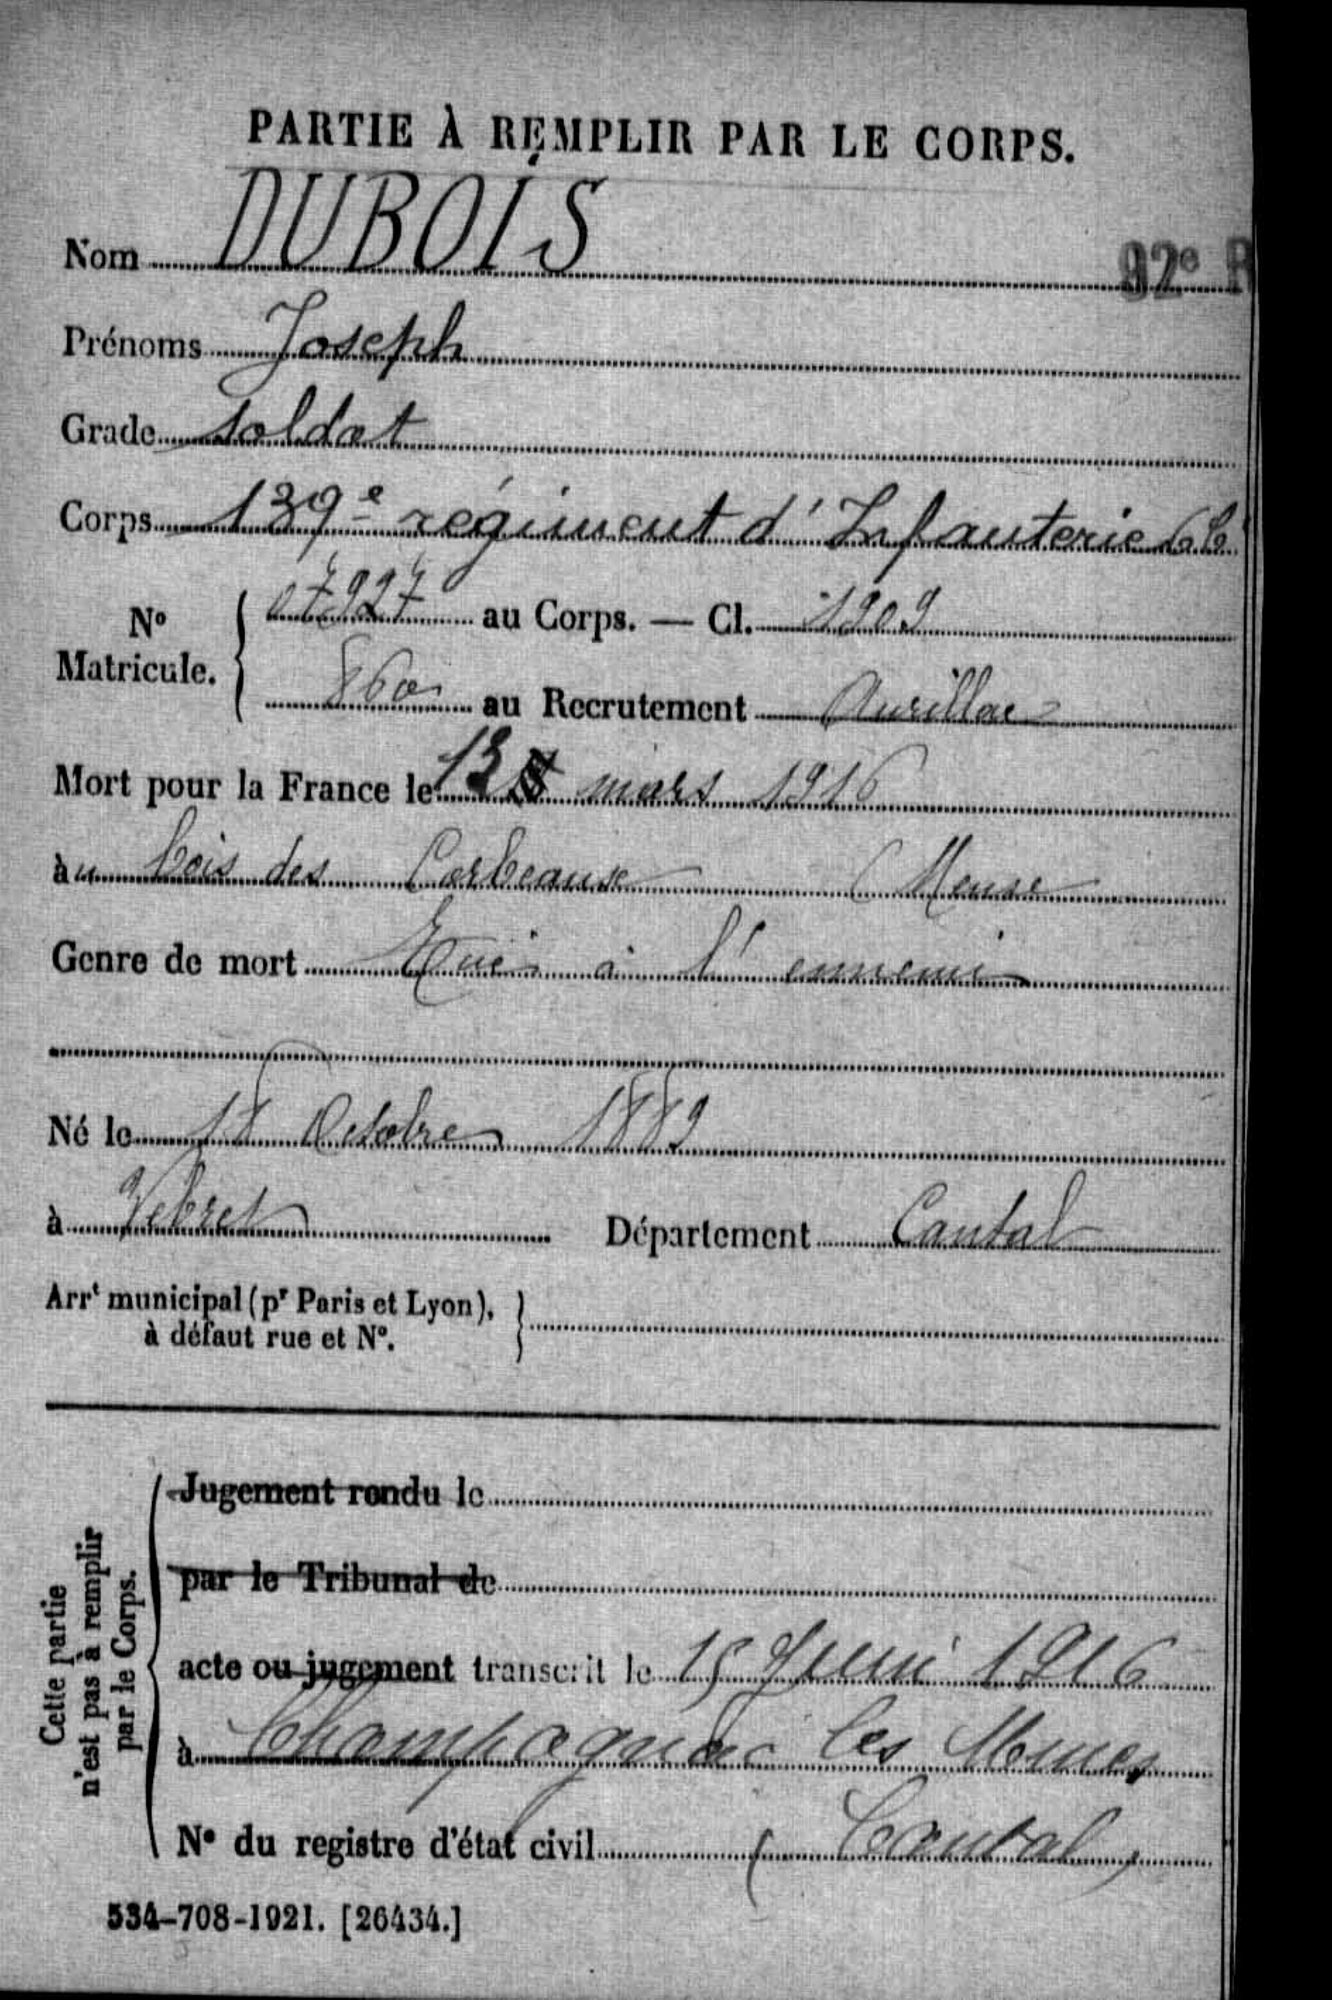 PARTIE À REMPLIR PAR LE CORPS.
Nom DUBOIS
92e R
Prénoms Joseph
Grade soldat
Corps 139e régiment d'Infanterie
No Matricule. 07927 au Corps. — Cl. 1909
860 au Recrutement Aurillac
Mort pour la France le 13 mars 1916
àu bois des Corbeaux (Meuse
Genre de mort Tué à l'ennemi
Né le 18 Octobre 1889
à Vebret Département Cantal
Arrt municipal (pr Paris et Lyon),
à défaut rue et No.
Cette partie
n'est pas à remplir
par le Corps.
Jugement rendu le
par le Tribunal de
acte ou jugement transcrit le 15 Juin 1916
à Champagnac les Mines
No du registre d'état civil (Cantal)
534-708-1921. [26434.]